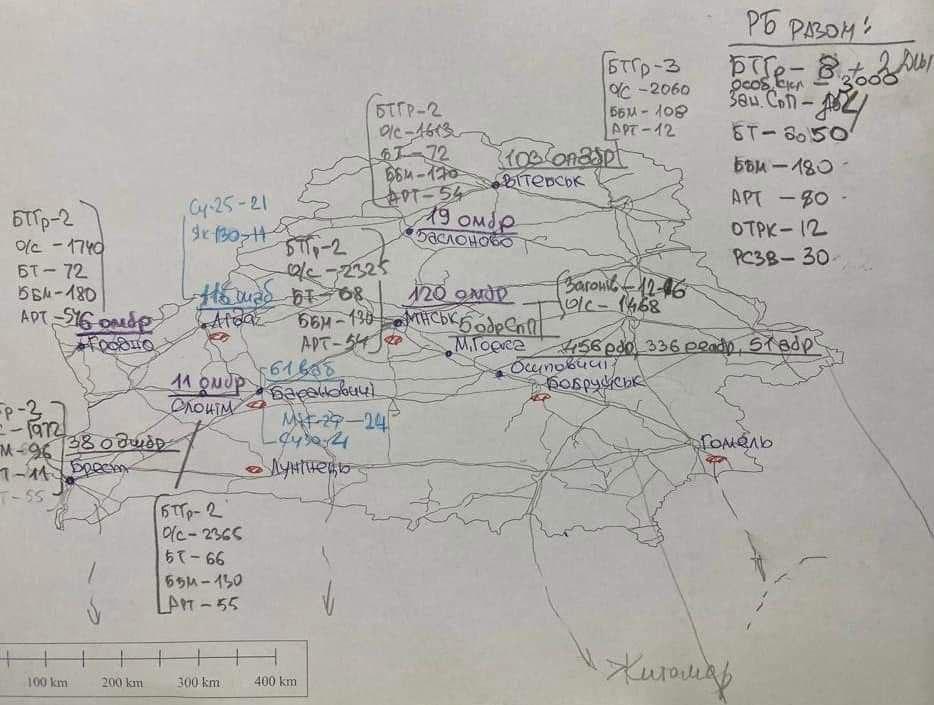 РБ РАЗОМ:
БТГр - 8 + 2
особ. скл - 3000
БТ - 50
ББМ - 180
АРТ - 80
ОТРК - 12
РСЗВ - 30
БТГр - 3
О/С - 2060
ББМ - 108
АРТ - 12
103 опдбр
Вітебськ
БТГр - 2
О/С - 1613
БТ - 72
ББМ - 170
АРТ - 54
19 омбр
Заслоново
Су-25-21
Як130-11
116 шаб
Ліда
БТГр - 2
О/С - 1740
БТ - 72
ББМ - 180
АРТ - 54
6 омбр
Гродно
БТГр - 2
О/С - 2325
БТ - 68
ББМ - 130
АРТ - 54
120 омбр
Мінськ
5 обрСпП
М.Горка
Загонів - 12-16
О/С - 1468
456 рбр, 336 реабр, 51 абр
Осиповичі
Бобруйськ
61 ваб
Барановичі
11 омбр
Слонім
38 одшбр
Брест
Лунінець
Гомель
БТГр - 2
О/С - 2365
БТ - 66
ББМ - 130
АРТ - 55
Житомир
100 km 200 km 300 km 400 km